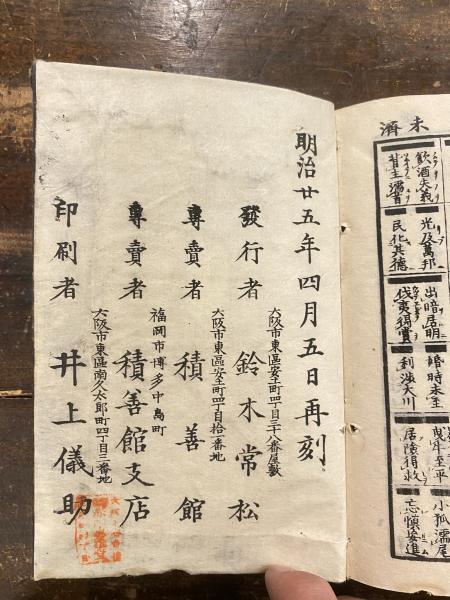 明治廿五年四月五日再刻
大阪市東區安土町四丁目三十八番屋敷
發行者 鈴木常松
大阪市東區安土町四丁目拾番地
專賣者 積善館
福岡市博多中島町
專賣者 積善館支店
大阪市東區南久太郎町四丁目三番地
印刷者 井上儀助
未濟
飲酒失義
甘土濡首
光及萬邦
民化其德
出暗居明
伐夷得賞
利涉大川
曳牢至平
居險得救
小狐濡尾
忘慎妄進